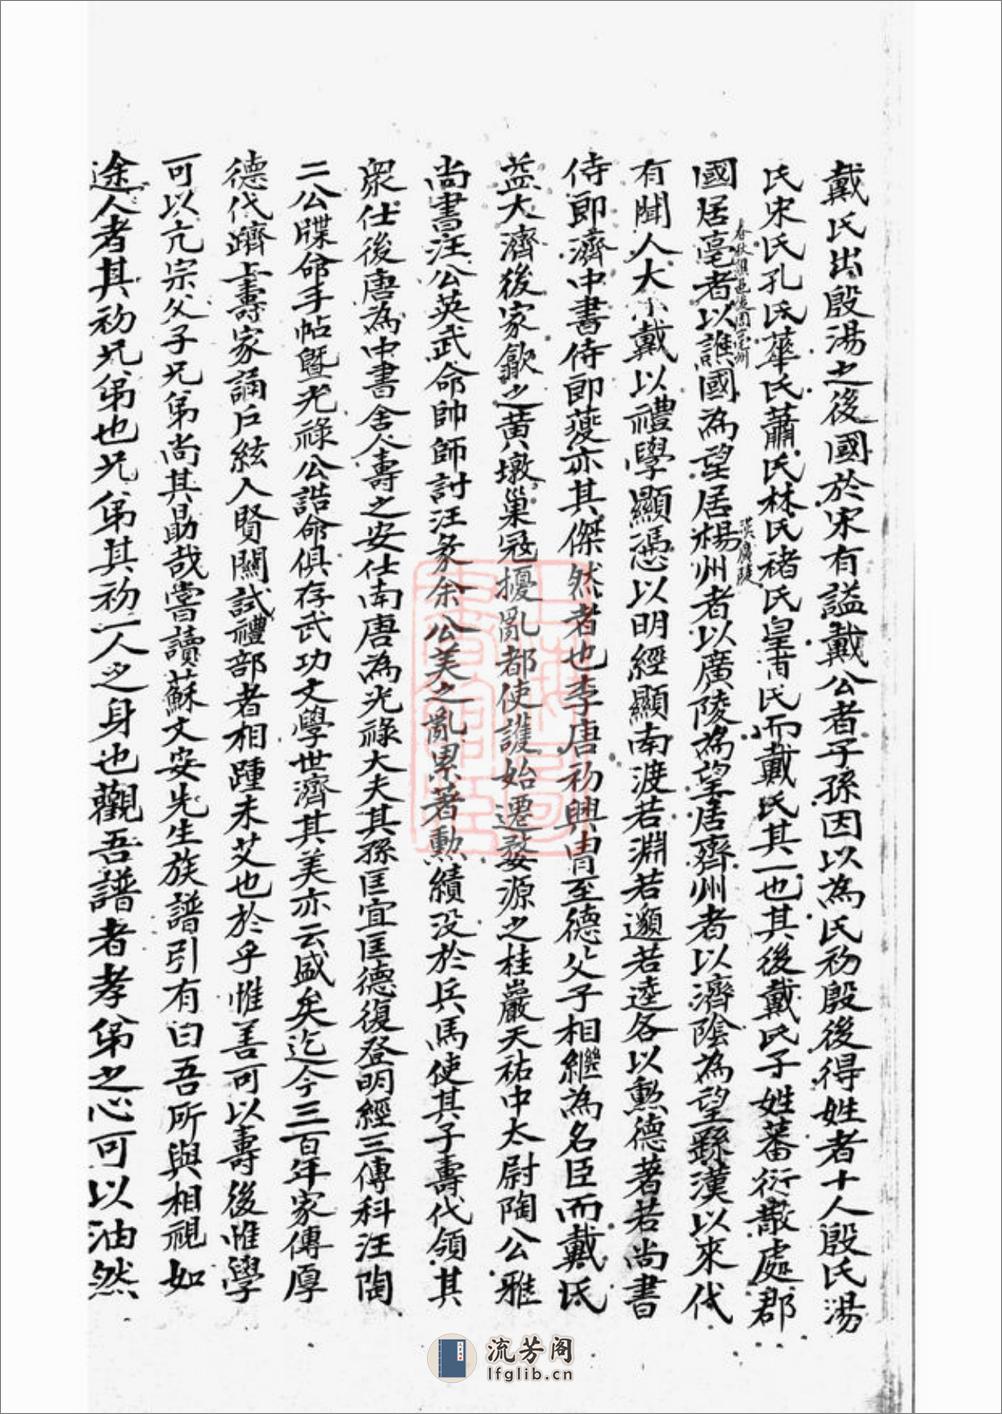 戴氏出殷湯之後國於宋有謚戴公者子孫因以為氏初殷後得姓者十人殷氏湯
氏宋氏孔氏華氏蕭氏林氏禇氏皇甫氏而戴氏其一也其後戴氏子姓蕃衍散處郡
國居亳者以譙國為望居楊州者以廣陵為望居齊州者以濟陰為望繇漢以來代
春秋譙邑後周亳州
漢廣陵
有聞人大小戴以禮學顯憑以明經顯南渡若淵若邈若逵各以勲德著若尚書
侍郎濟中書侍郎夔亦其傑然者也李唐初興胄至德父子相繼為名臣而戴氏
益大濟後家歙之黃墩巢寇擾亂都使護始遷婺源之桂巖天祐中太尉陶公雅
尚書汪公英武命帥師討汪彖余公美之亂累著勲績没於兵馬使其子壽代領其
衆仕後唐為中書舍人壽之安仕南唐為光祿大夫其孫匡宜匡德復登明經三傳科汪陶
二公牒命手帖暨光祿公誥命俱存武功文學世濟其美亦云盛矣迄今三百年家傳厚
德代躋上壽家誦戶絃入賢關試禮部者相踵未艾也於乎惟善可以壽後惟學
可以亢宗父子兄弟尚其勗哉嘗讀蘇文安先生族譜引有曰吾所與相視如
途人者其初兄弟也兄弟其初一人之身也觀吾譜者孝弟之心可以油然
流芳阁
lfglib.cn